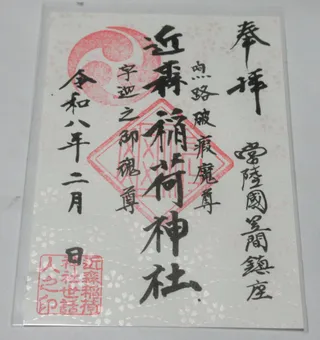 奉拝
常陸國笠間鎮座
近森稲荷神社
宇迦之御魂尊
令和八年二月 日
近森稲荷
神社世話
人之印